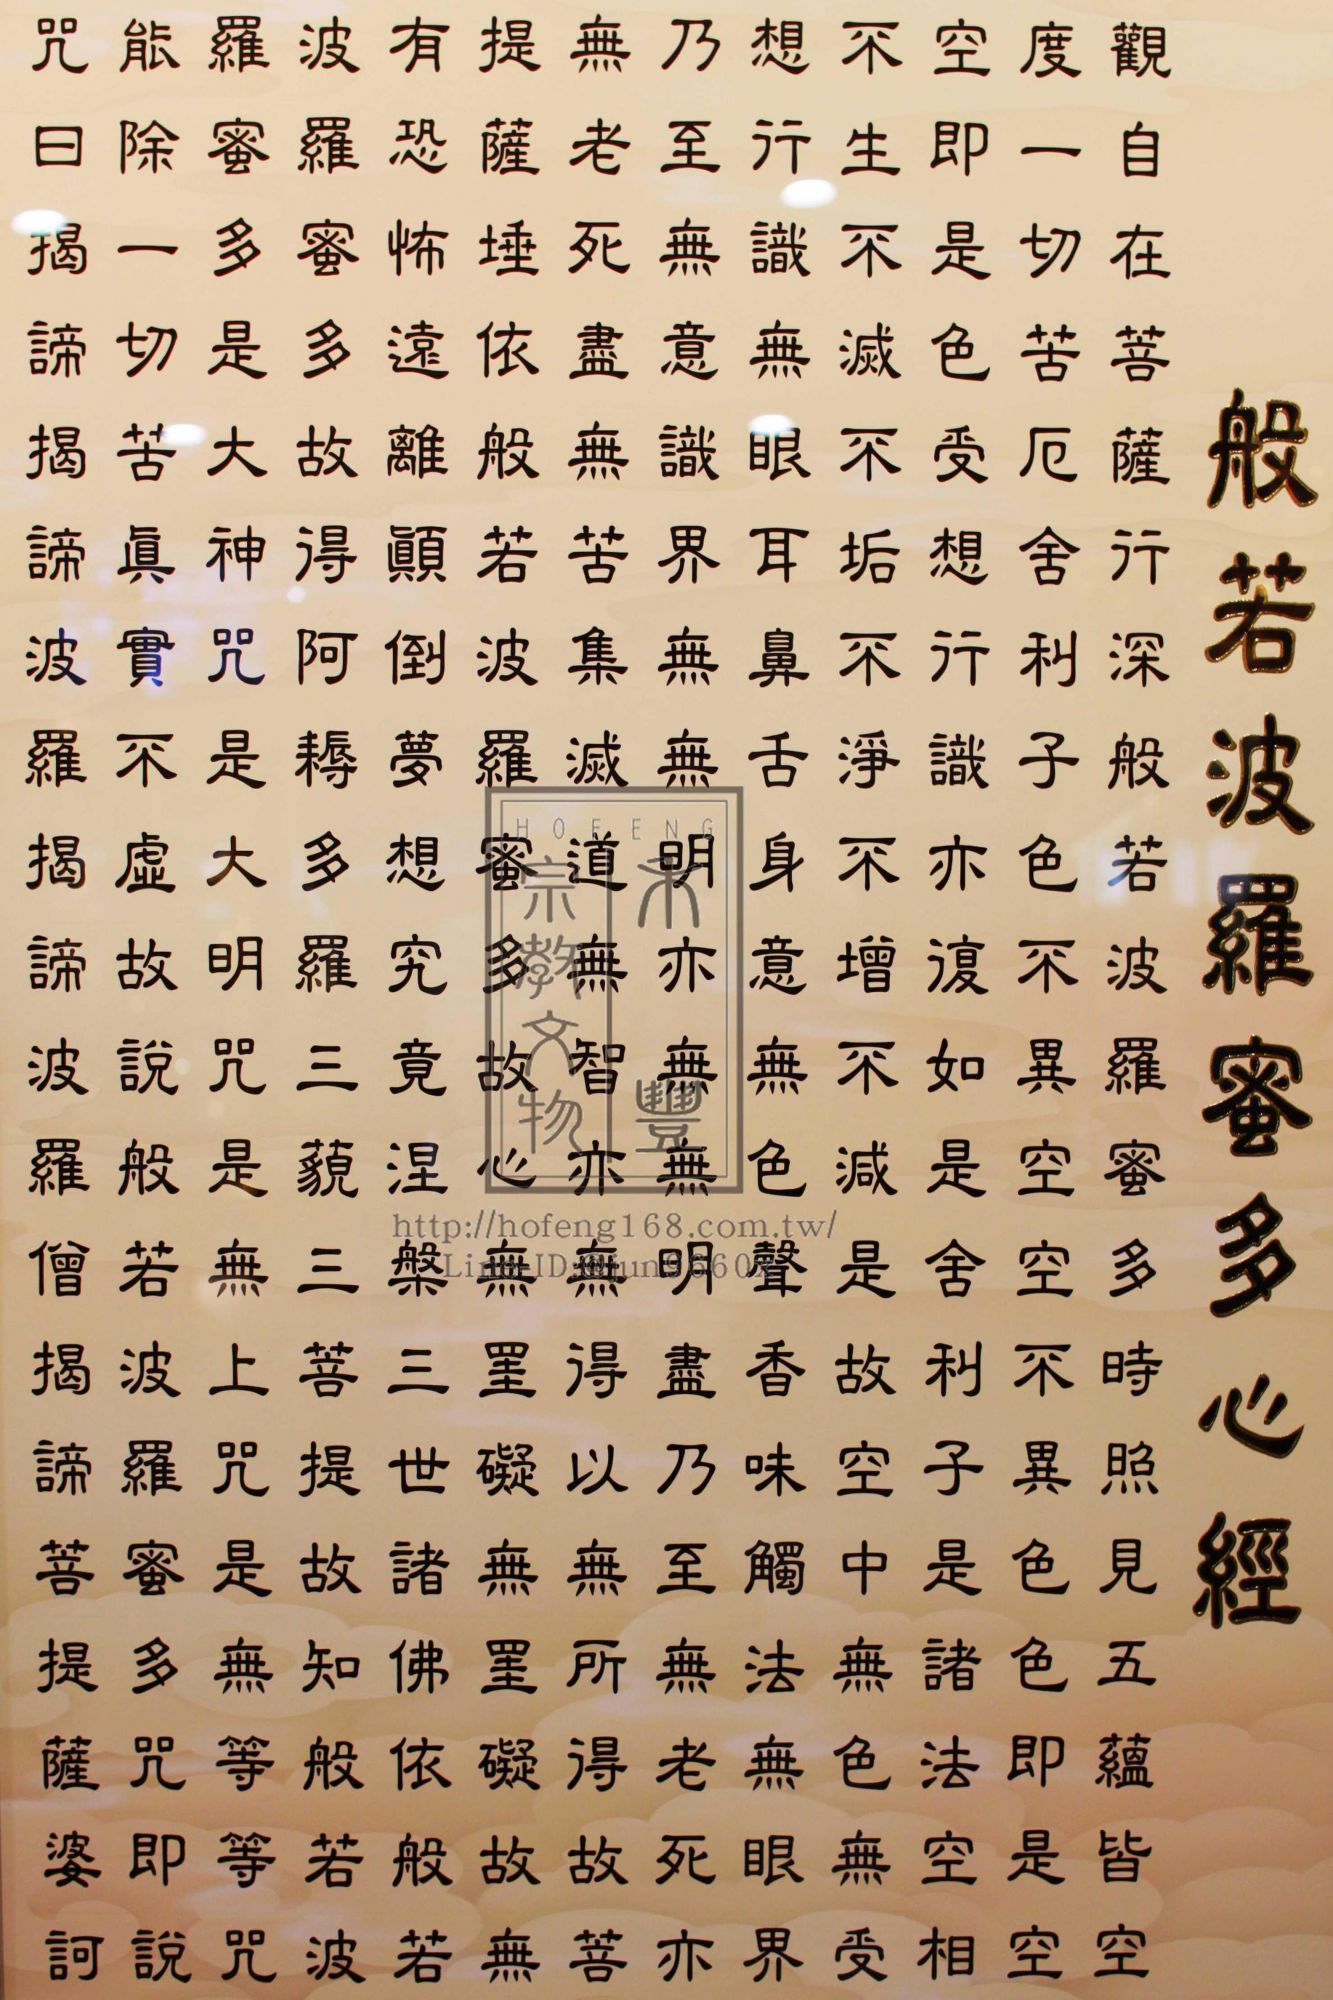 般若波羅蜜多心經
觀自在菩薩行深般若波羅蜜多時照見五蘊皆空
度一切苦厄舍利子色不異空空不異色色即是空
空即是色受想行識亦復如是舍利子是諸法空相
不生不滅不垢不淨不增不減是故空中無色無受
想行識無眼耳鼻舌身意無色聲香味觸法無眼界
乃至無意識界無無明亦無無明盡乃至無老死亦
無老死盡無苦集滅道無智亦無得以無所得故菩
提薩埵依般若波羅蜜多故心無罣礙無罣礙故無
有恐怖遠離顚倒夢想究竟涅槃三世諸佛依般若
波羅蜜多故得阿耨多羅三藐三菩提故知般若波
羅蜜多是大神咒是大明咒是無上咒是無等等咒
能除一切苦眞實不虛故說般若波羅蜜多咒即說
咒曰揭諦揭諦波羅揭諦波羅僧揭諦菩提薩婆訶
HOFENG
禾豐
宗教文物
http://hofeng168.com.tw/